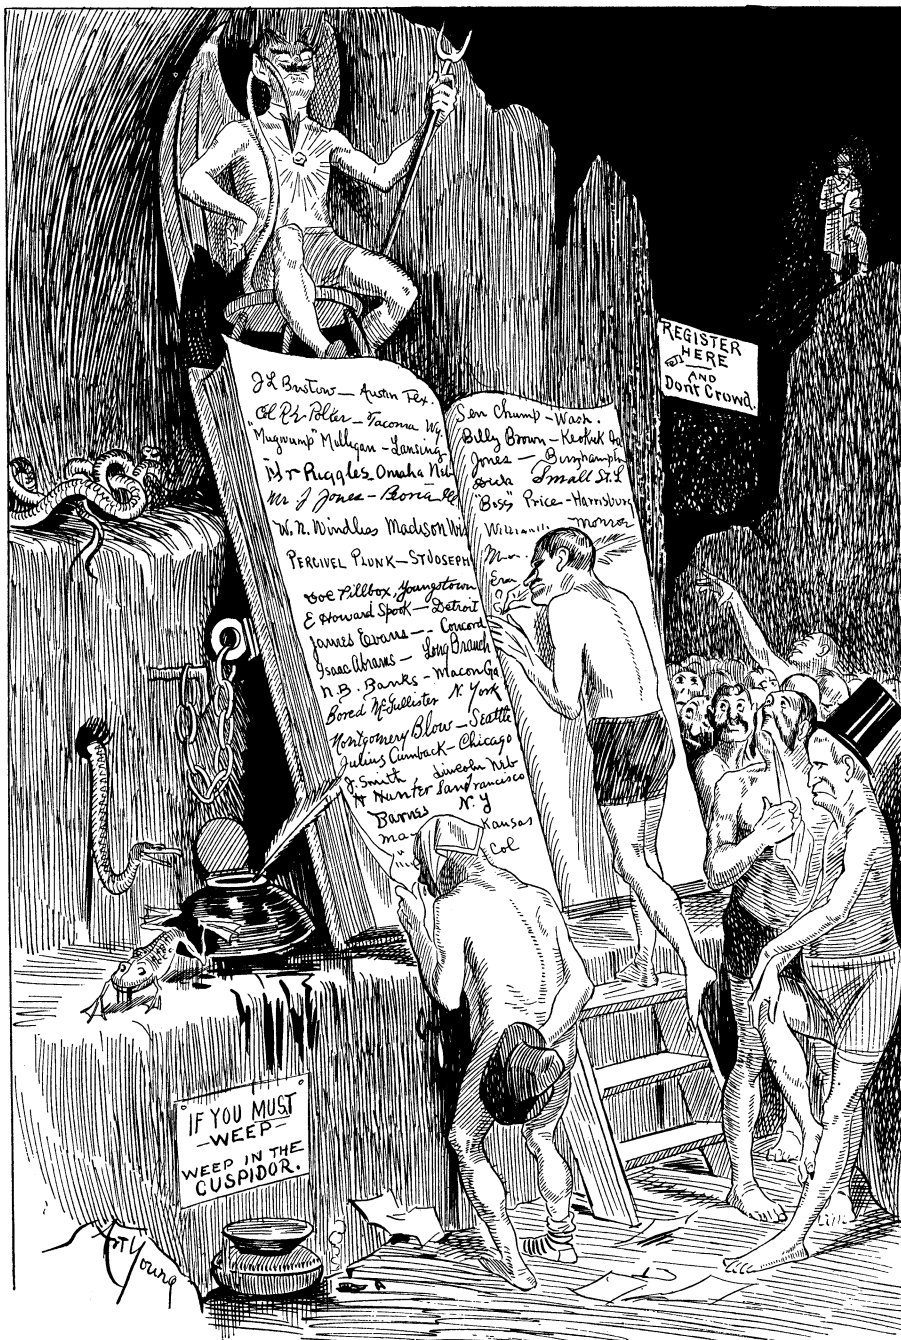 REGISTER
HERE
AND
Don't Crowd.
J L Bristow — Austin Tex.
Tacoma Wy
"Mugwump" Milligan — Lansing
Mr Ruggles Omaha Neb
Mr J Jones — Peoria Ill
W. N. Windless Madison Wis
PERCIVEL PLUNK — ST JOSEPH
Doc Pillbox, Youngstown
E Howard Spook — Detroit
James Evans — Concord
Isaac Abrams — Long Branch
N. B. Banks — Macon Ga
Bored McGullister N. York
Montgomery Blow — Seattle
Julius Cumback — Chicago
J. Smith Lincoln Neb
Hunter San Francisco
Barnes N. Y
Ma Kansas
Col
Sen Chump — Wash.
Billy Brown — Keokuk Ia
Jones — Binghampton
Small St. L
"Boss" Price — Harrisburg
Monroe
IF YOU MUST
— WEEP —
WEEP IN THE
CUSPIDOR.
Art Young